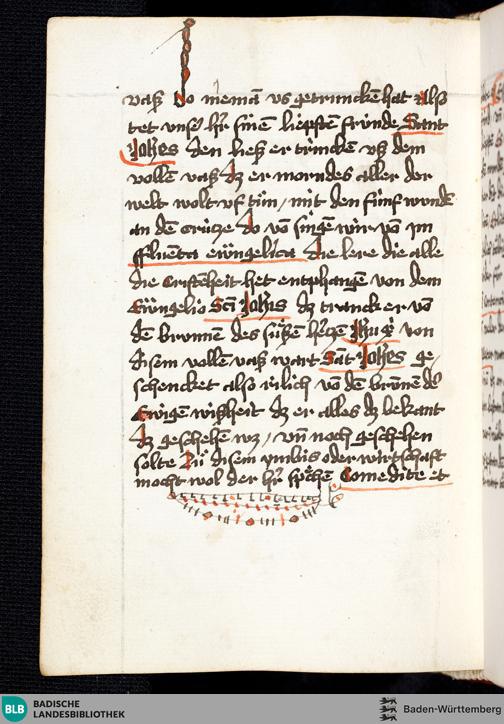 vaß do niemā us getrunckē hat Also
tet unsˀ hˀr sinē liepsten fründe Sant
Johēs den ließ er trincken uß dem
vollen vaß dz er morndes aller der
welt wolt uf tūn / mit den fünf wundē
an dē crütze do vō singēt wir vō jm
ffluēta ewāngelica die lere die alle
die cristēheit het entphangen von dem
Ewāngelio Scī Johīs dz tranck er vō
dē brunnen des süßē hˀtzē Jhūs von
disem vollē vaß wart Sāt Johēs ge
schencket also rilich vō dē brūnē dˀ
Ewigē wißheit dz er alles dz bekant
dz geschehē wz / vn̄ noch geschehen
solte Zů disem ymbis oder wirtschaft
mocht wol der hˀr sprechē Comedite et
BLB
BADISCHE
LANDESBIBLIOTHEK
Baden-Württemberg